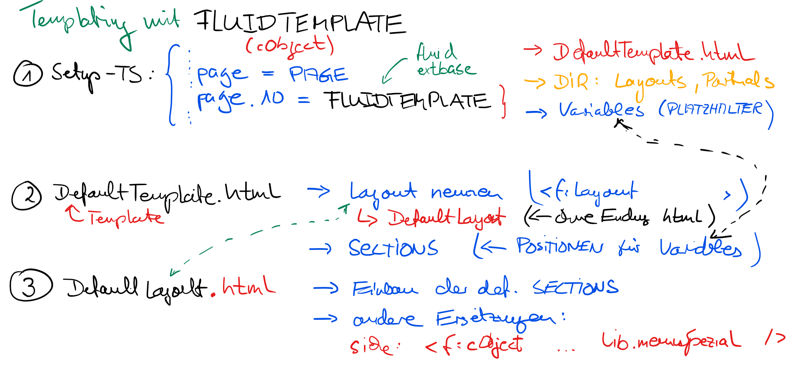 Templating mit FLUIDTEMPLATE
(cObject)
fluid
extbase
① Setup-TS:
page = PAGE
page.10 = FLUIDTEMPLATE
→ DefaultTemplate.html
→ DIR: Layouts, Partials
→ Variables (PLATZHALTER)
② DefaultTemplate.html → Layout nennen (<f:layout >)
Template
↳ DefaultLayout (← ohne Endung html)
→ SECTIONS (← POSITIONEN für Variables)
③ DefaultLayout.html → Einbau der def. SECTIONS
→ andere Ersetzungen:
siehe: <f:cObject ... lib.menuSpezial />